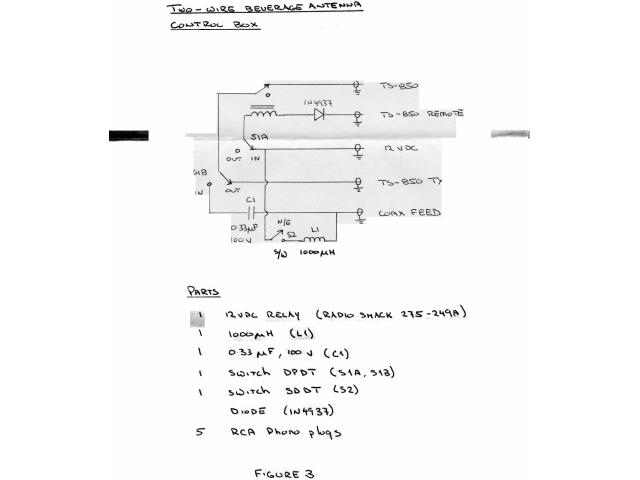 TWO-WIRE BEVERAGE ANTENNA
CONTROL BOX
TS-850
1N4937
TS-850 REMOTE
S1A
12VDC
OUT IN
S1B
TS-850 TX
IN
OUT
C1
COAX FEED
0.33µF
100V
N/E
S2
L1
S/W
1000µH
PARTS
1 12VDC RELAY (RADIO SHACK 275-249A)
1 1000µH (L1)
1 0.33µF, 100V (C1)
1 SWITCH DPDT (S1A, S1B)
1 SWITCH SDDT (S2)
DIODE (1N4937)
5 RCA Phono plugs
FIGURE 3